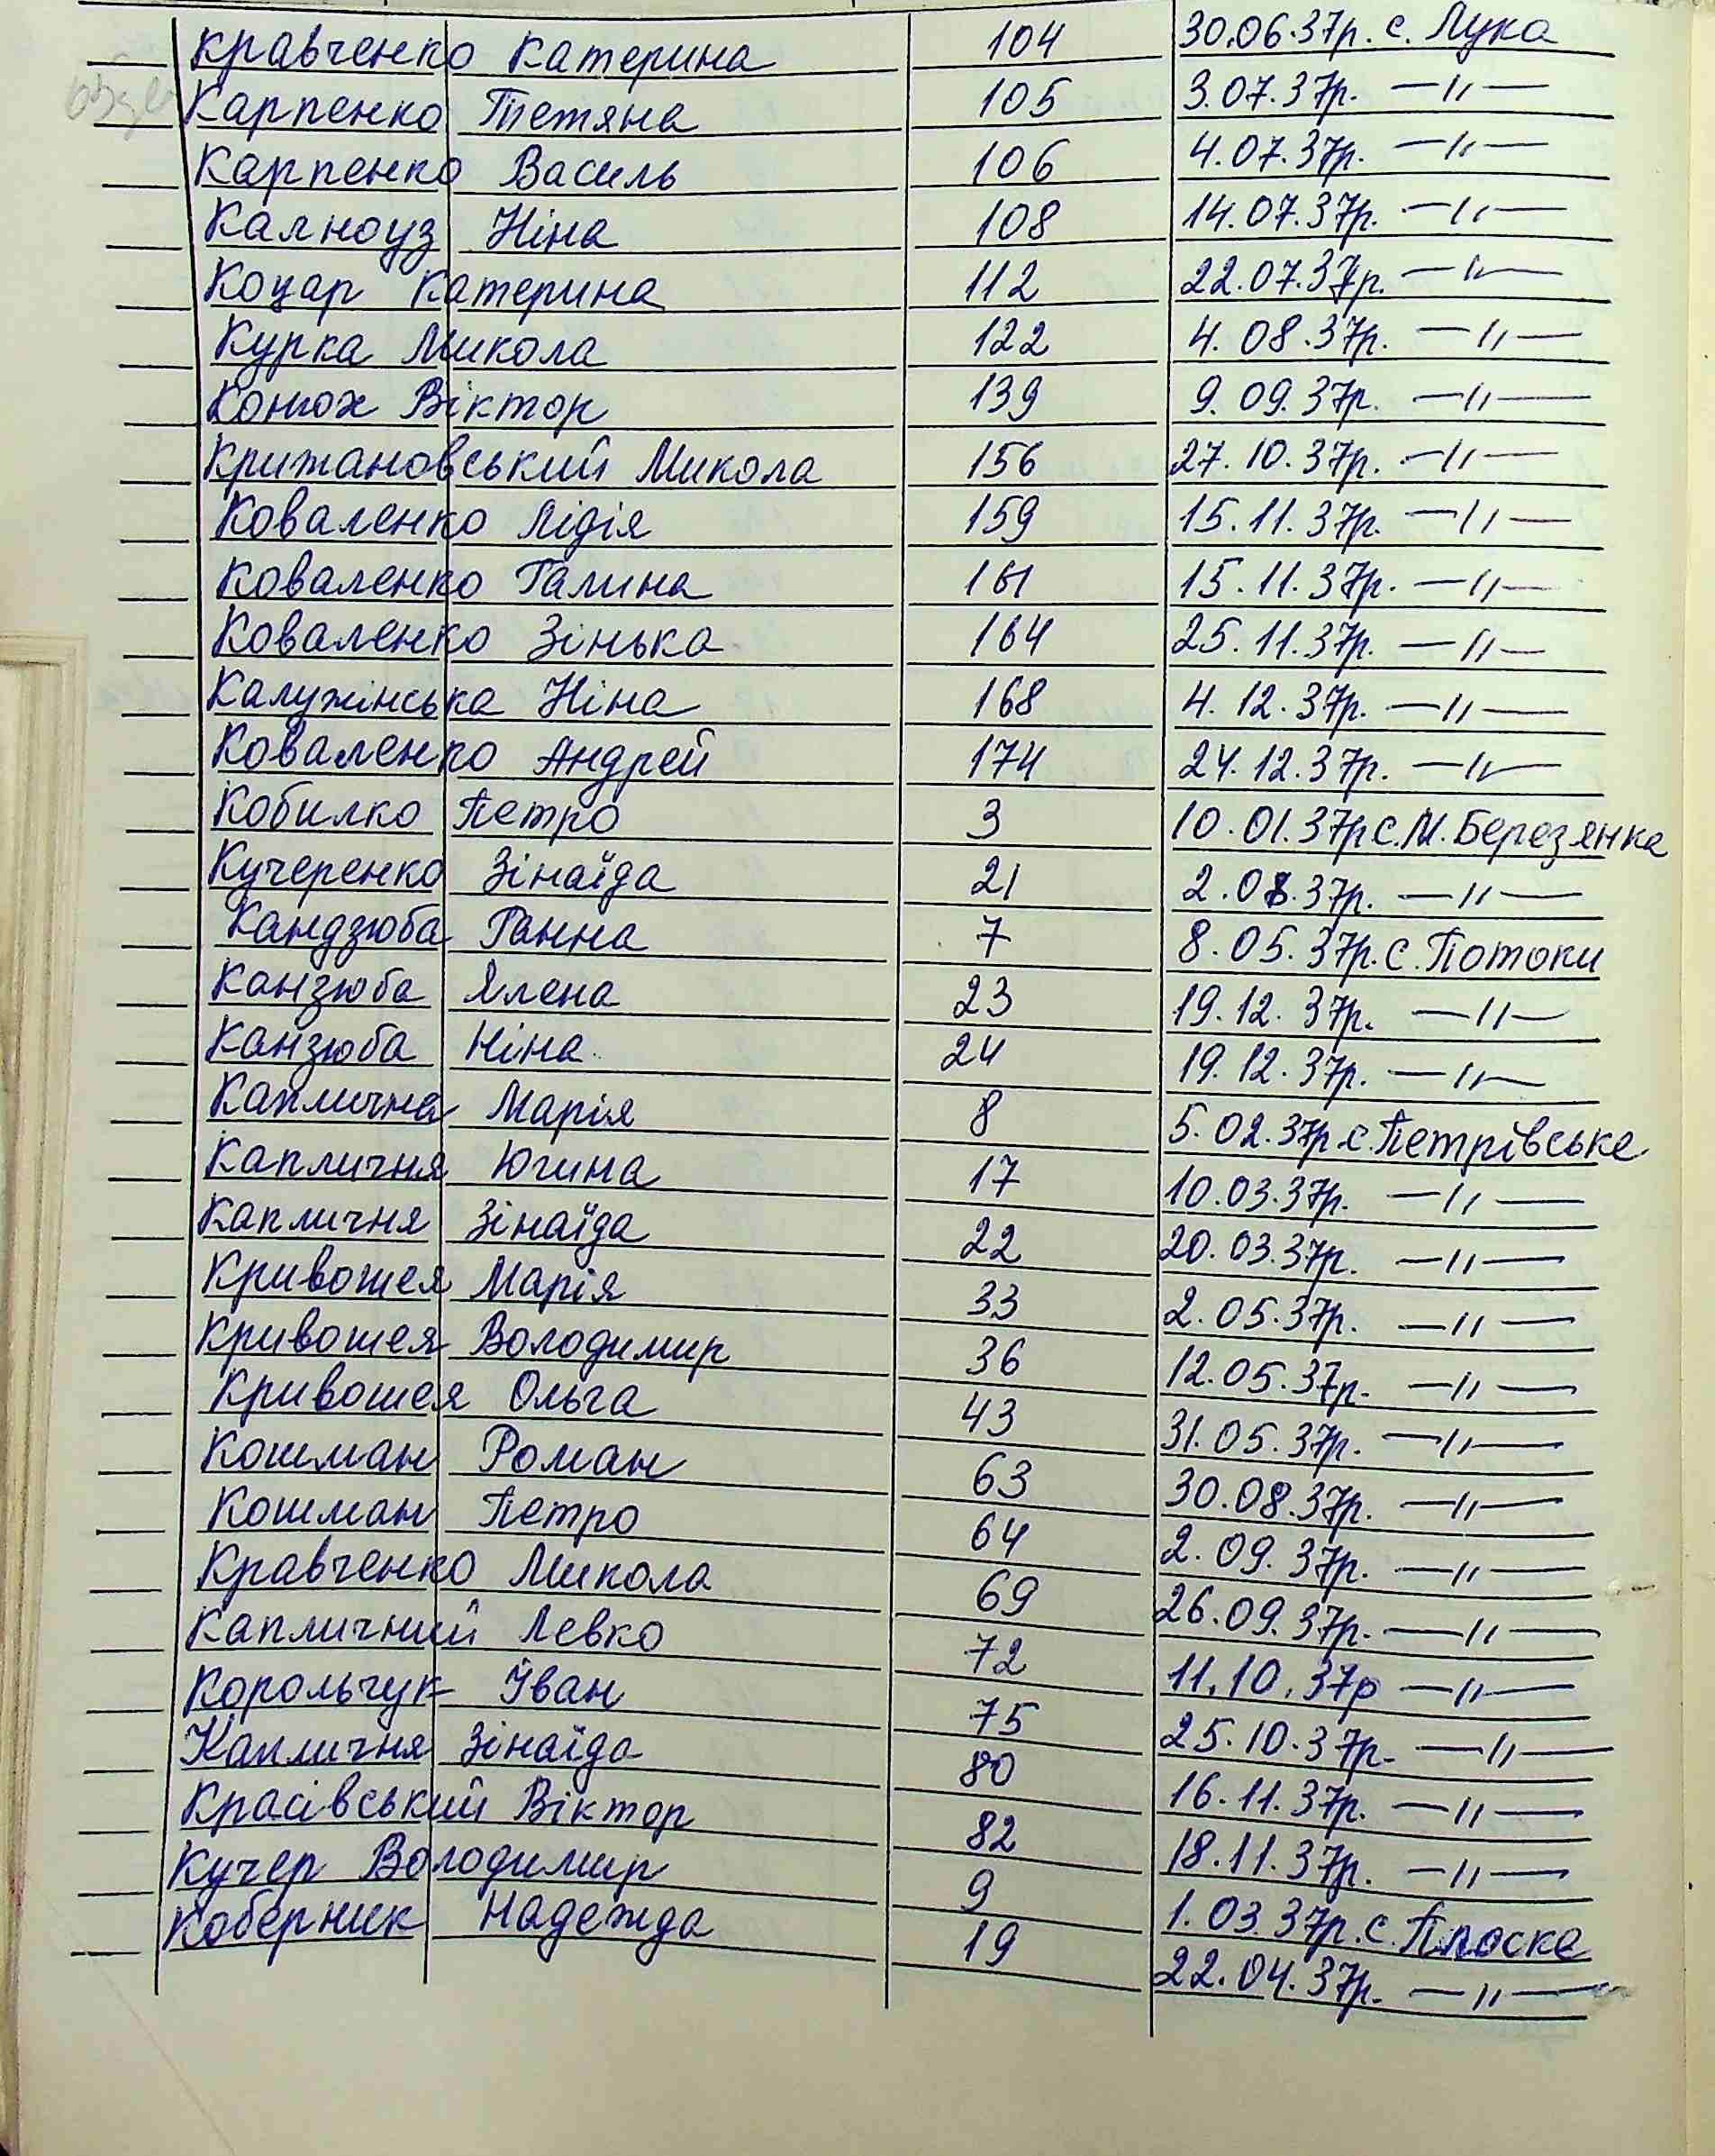 Кравченко Катерина 104 30.06.37р. с. Лука
Карпенко Тетяна 105 3.07.37р. —"—
Карпенко Василь 106 4.07.37р. —"—
Калноуз Ніна 108 14.07.37р. —"—
Коцар Катерина 112 22.07.37р. —"—
Курка Микола 122 4.08.37р. —"—
Конюх Віктор 139 9.09.37р. —"—
Крижановський Микола 156 27.10.37р. —"—
Коваленко Лідія 159 15.11.37р. —"—
Коваленко Галина 161 15.11.37р. —"—
Коваленко Зінька 164 25.11.37р. —"—
Калужінська Ніна 168 4.12.37р. —"—
Коваленко Андрей 174 24.12.37р. —"—
Кобилко Петро 3 10.01.37р с. М. Березянка
Кучеренко Зінаїда 21 2.08.37р. —"—
Кандзюба Ганна 7 8.05.37р. с. Потоки
Канзюба Ялена 23 19.12.37р. —"—
Канзюба Ніна 24 19.12.37р. —"—
Каплична Марія 8 5.02.37р. с. Петрівське
Капличня Югина 17 10.03.37р. —"—
Капличня Зінаїда 22 20.03.37р. —"—
Кривошея Марія 33 2.05.37р. —"—
Кривошея Володимир 36 12.05.37р. —"—
Кривошея Ольга 43 31.05.37р. —"—
Кошман Роман 63 30.08.37р. —"—
Кошман Петро 64 2.09.37р. —"—
Кравченко Микола 69 26.09.37р. —"—
Капличний Левко 72 11.10.37р —"—
Корольчук Іван 75 25.10.37р. —"—
Капличня Зінаїда 80 16.11.37р. —"—
Красівський Віктор 82 18.11.37р. —"—
Кучер Володимир 9 1.03.37р. с. Плоске
Коберник Надежда 19 22.04.37р. —"—